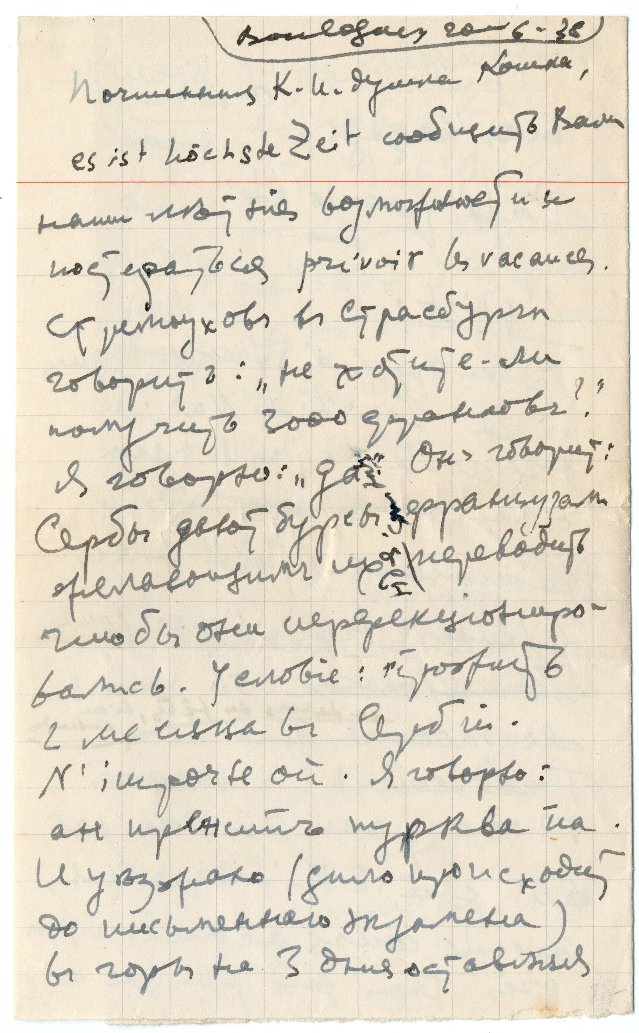 Boulogne 20 6-38
Почтенная К.И. душка Кошка,
es ist höchste Zeit сообщить Вам
наши летнія возможности и
постараться prévoir les vacances.
Стремоуховъ въ Страсбурге
говоритъ: „не хотите-ли
получить 3000 франковъ?"
Я говорю: „да". Онъ говоритъ:
Сербы даютъ бурсы французамъ
желающимъ их переводить
чтобы они
вались. Условіе: прожить
2 месяца въ Сербіи.
N'importe où. Я говорю:
ан принсипъ пурква па.
И уезжаю (дело происходитъ
до письменнаго экзамена)
въ горы на 3 дня оставляя